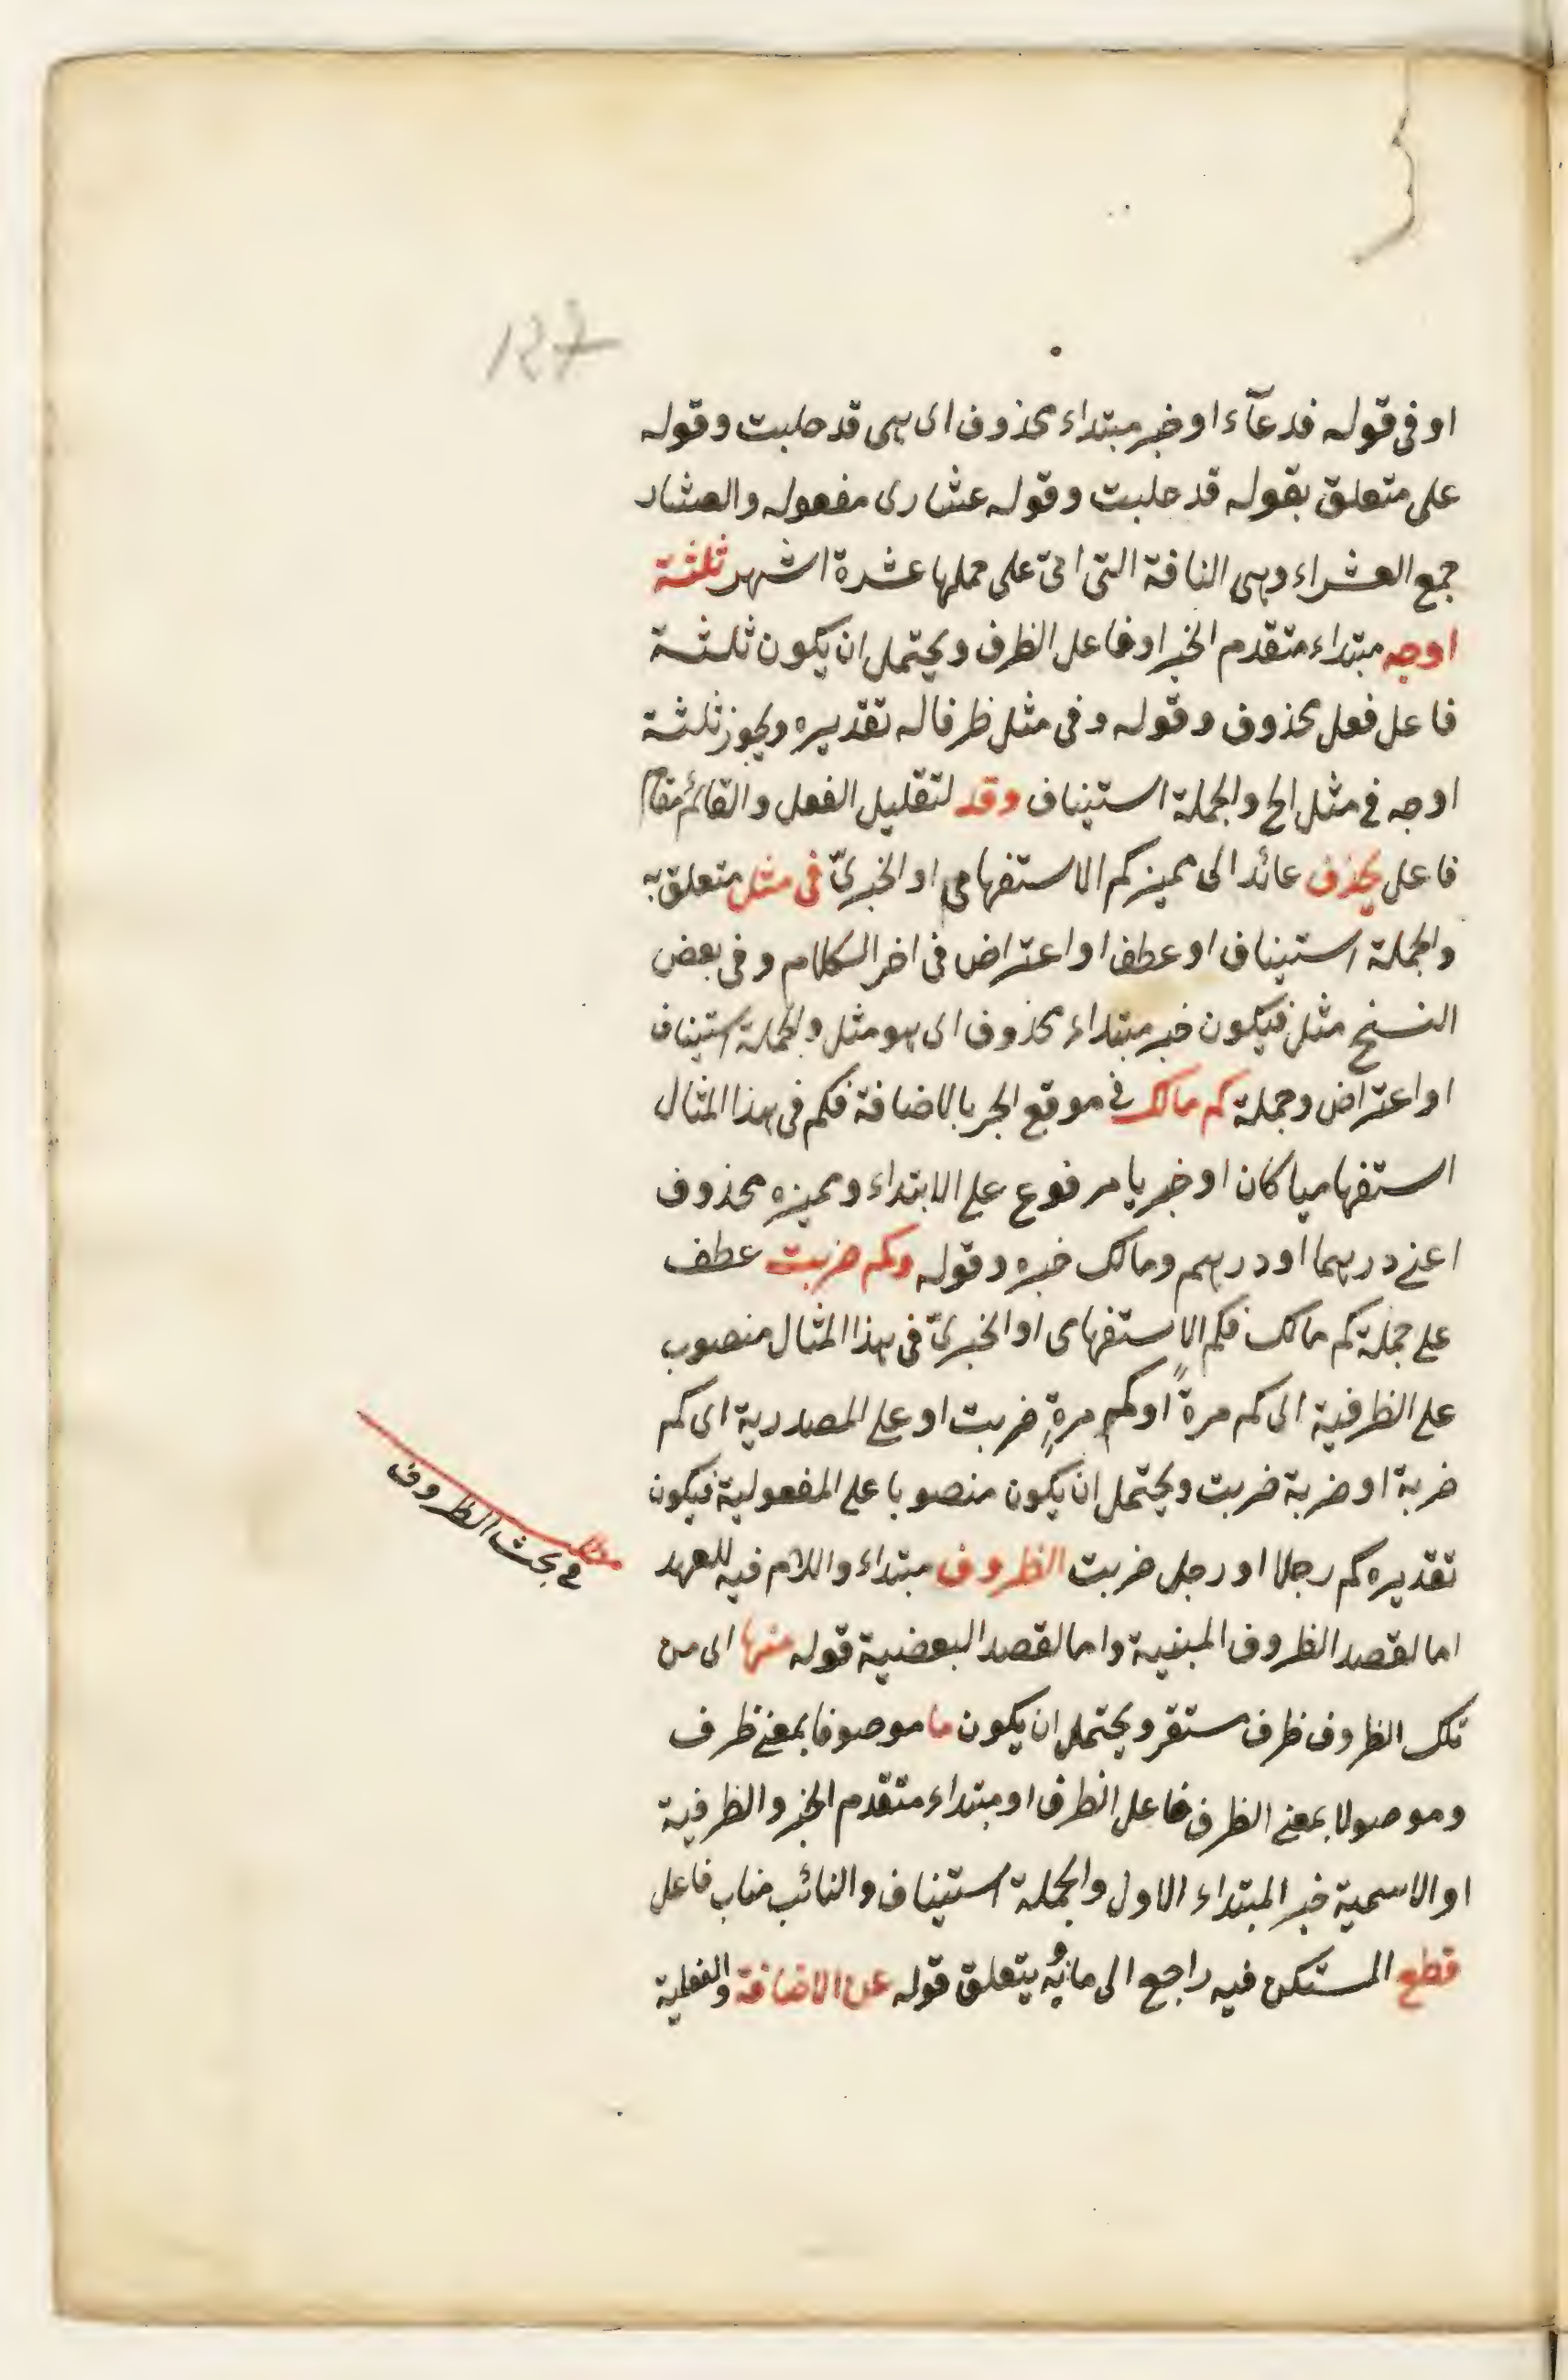 127
او فى قوله فدعآء او خبر مبتداء محذوف اى هى قد حلبت وقوله
على متعلق بقوله قد حلبت وقوله عشارى مفعوله والعشار
جمع العشراء وهى الناقة التى اتى على حملها عشرة اشهر ثلثة
اوجه مبتداء متقدم الخبر او فاعل الظرف ويحتمل ان يكون ثلثة
فاعل فعل محذوف وقوله وفى مثل ظرفا له تقديره ويجوز ثلثة
اوجه فى مثل الخ والجملة استيناف وقد لتقليل الفعل والقائم مقام
فاعل يحذف عائد الى مميز كم الاستفهامى او الخبرىّ فى مثل متعلق به
والجملة استيناف او عطف او اعتراض فى اخر الكلام وفى بعض
النسخ مثل فيكون خبر مبتداء محذوف اى هو مثل والجملة استيناف
او اعتراض وجملة كم مالك فى موقع الجر بالاضافة فكم فى هذا المثال
استفهاميا كان او خبريا مرفوع على الابتداء ومميزه محذوف
اعنى درهما او درهم ومالك خبره وقوله وكم ضربت عطف
على جملة كم مالك فكم الاستفهامى او الخبرىّ فى هذا المثال منصوب
على الظرفية اى كم مرةً او كم مرةٍ ضربت او على المصدرية اى كم
ضربة او ضربة ضربت ويحتمل ان يكون منصوبا على المفعولية فيكون
تقديره كم رجلا او رجل ضربت الظروف مبتداء واللام فيه للعهد
فى بحث الظروف
اما لقصد الظروف المبنية واما لقصد البعضية قوله منها اى من
تلك الظروف ظرف مستقر ويحتمل ان يكون ما موصوفا بمعنى ظرف
وموصولا بمعنى الظرف فاعل الظرف او مبتداء متقدم الخبر والظرفية
او الاسمية خبر المبتداء الاول والجملة استيناف والنائب مناب فاعل
قطع المستكن فيه راجع الى ما وبه يتعلق قوله عن الاضافة والفعلية